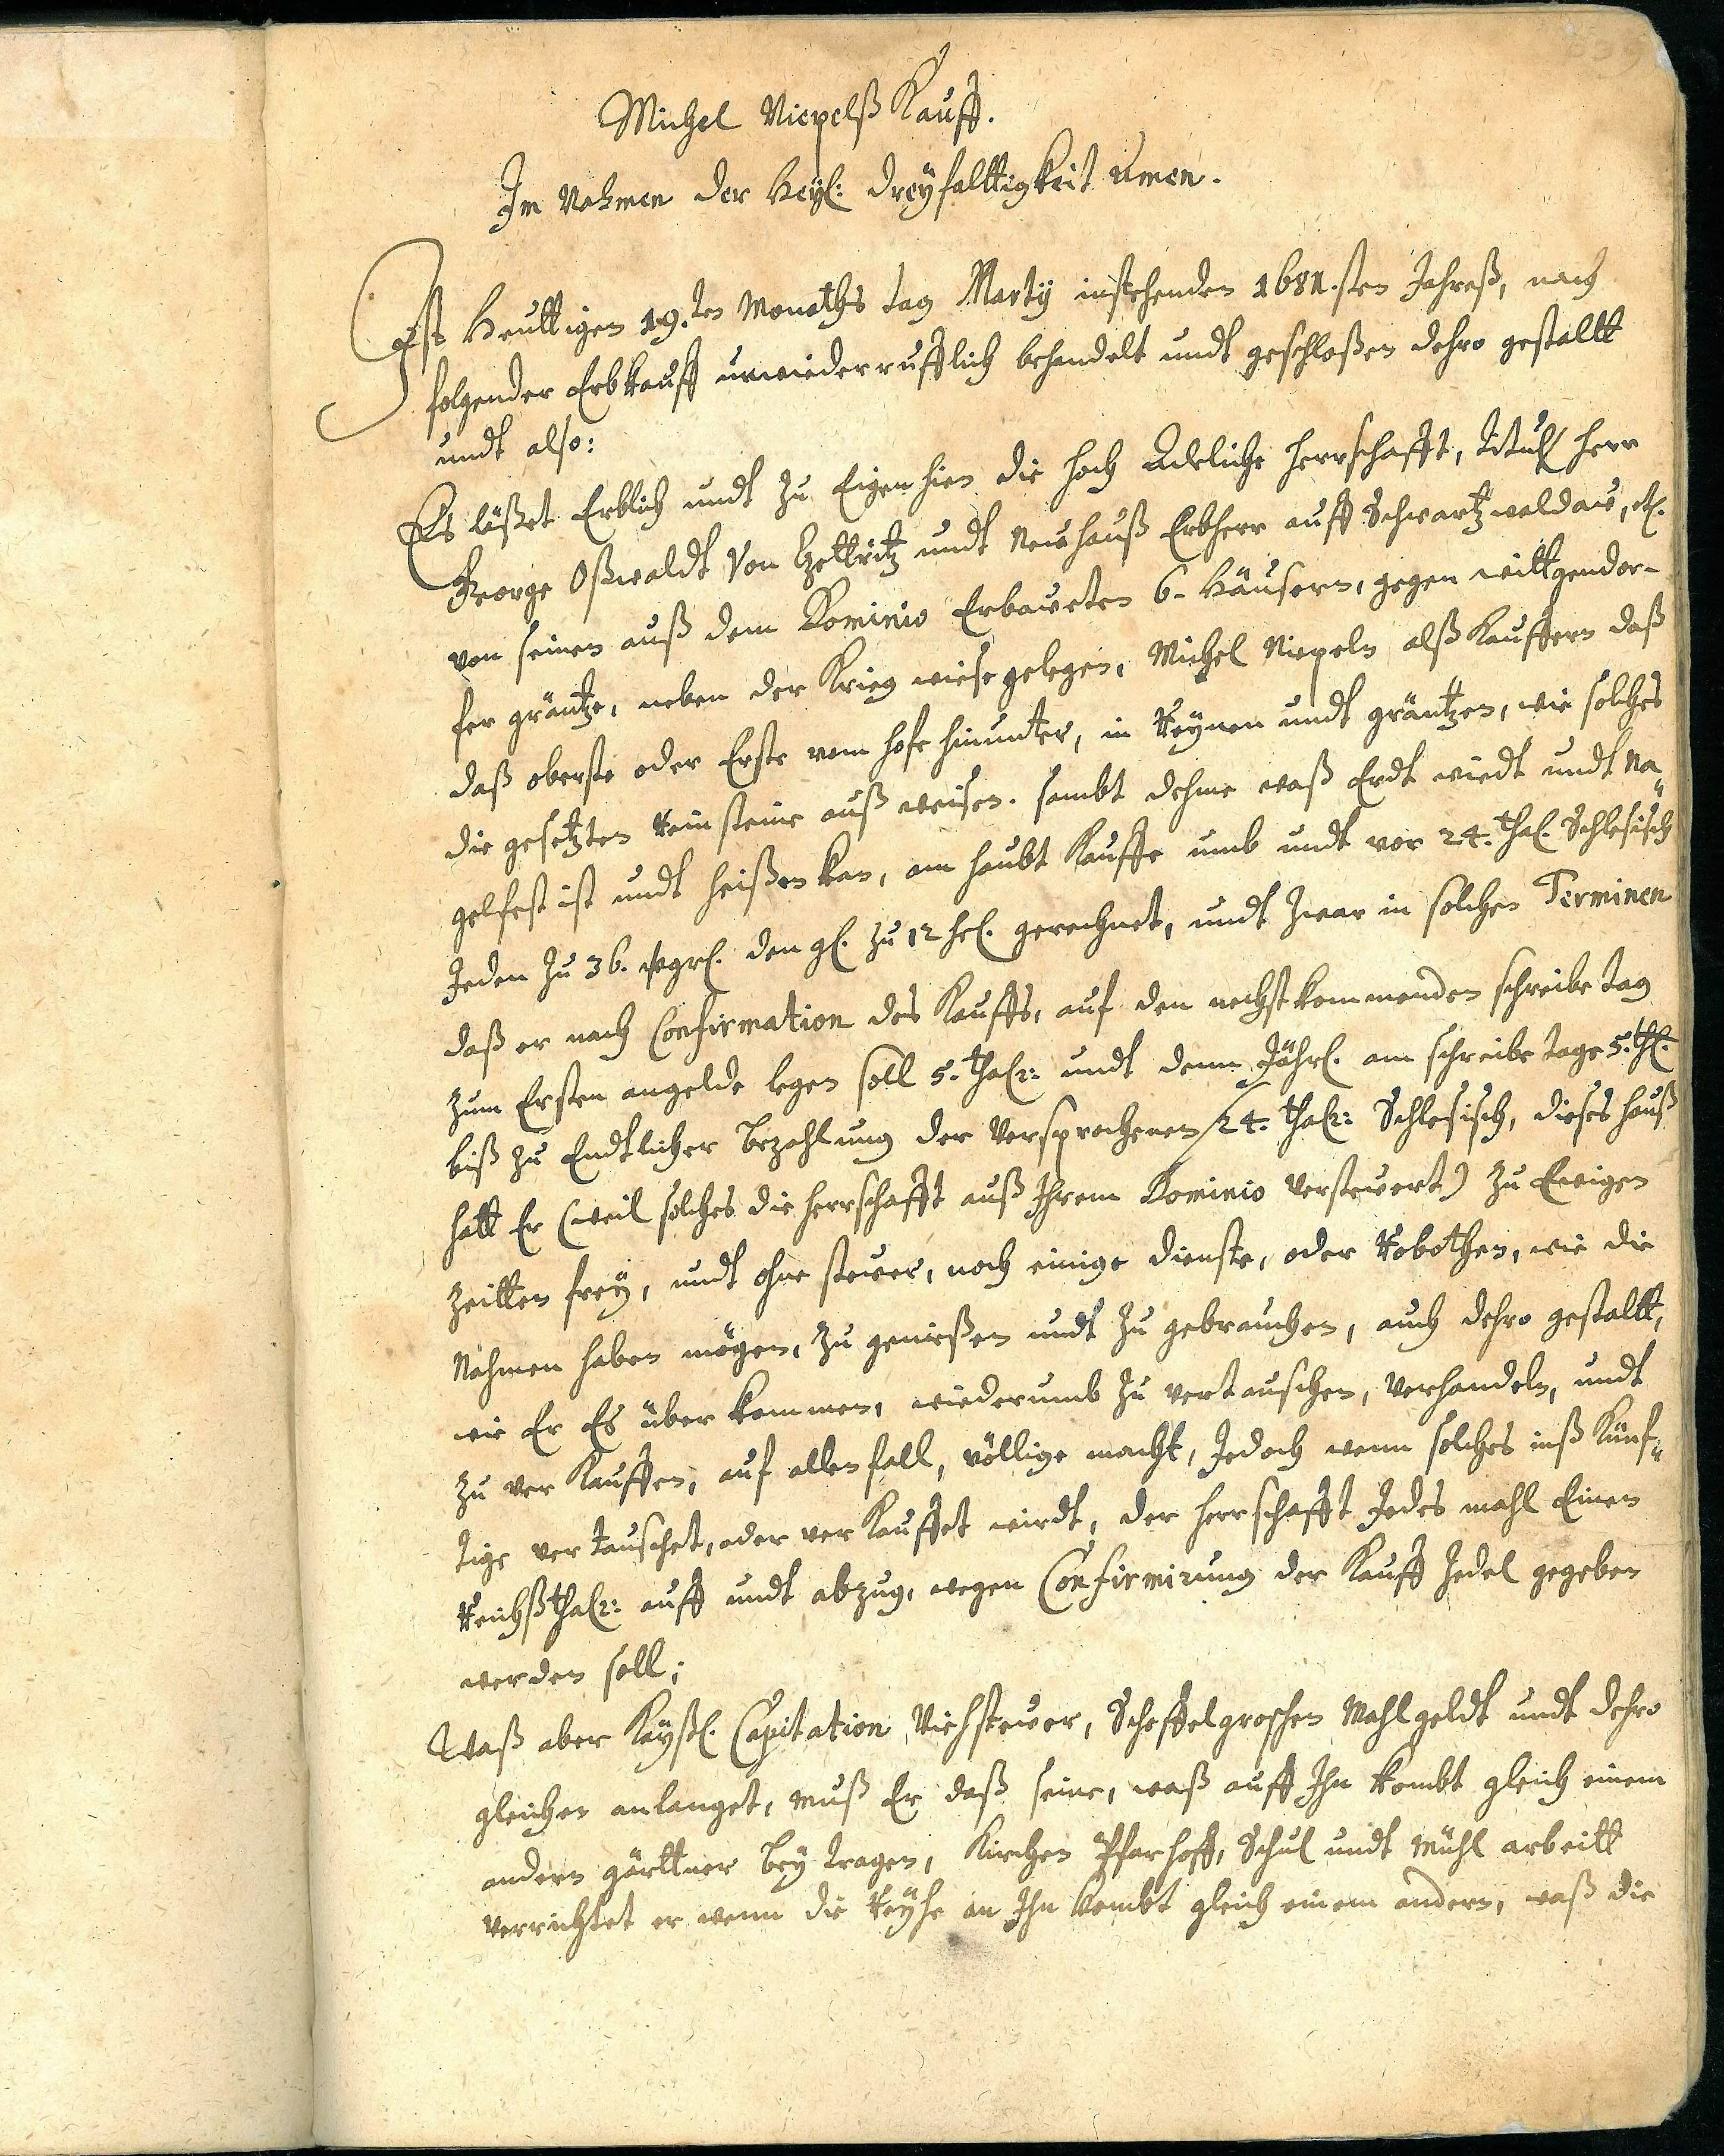 Michel Niepelß Kauff.
Im Nahmen der Heyl: dreyfalttigkeit Amen.
Ist Heuttigen 19.ten Monaths tag Marty instehenden 1681.sten Jahreß, nach
folgender Erbkauff unwiederrufflich behandelt undt geschloßen dehro gestaltt
undt also:
Es läßet Erblich undt zu Eigen hien die Hoch Adeliche Herrschafft, Titul/ Herr
George Oßwaldt Von Czettritz undt Neuhauß Erbherr auff Schwartzwaldaw, etc.
von seinen auß dem Dominio Erbaweten 6. Häusern, gegen wittgendor-
fer gräntze, neben der Krieg wiese gelegen, Michel Niepeln alß Kauffern daß
daß oberste oder Erste vom Hofe hinunter, in Reynen undt gräntzen, wie solches
die gesetzten Reinsteine auß weisen. sambt dehme waß Erdt wiedt undt Na¨
gelfest ist undt heißen kan, am haubt Kauffe umb undt vor 24. thal. Schlesisch
Jeden zu 36. wgrl. den gl. zu 12 hel. gerechnet, undt zwar in solchen Terminen
daß er nach Confirmation des Kauffs, auf den nechstkommenden schreibe tag
zum Ersten angelde legen soll 5. thalr: undt denn Jährl. am schreibe tage 5. thl.
biß zu Endtlicher bezahlung der Versprochenen 24. thalr: Schlesisch, dieses hauß
hatt Er (weil solches die Herrschafft auß Ihrem Dominio versteuert) zu Ewigen
zeitten frey, undt ohne steuer, noch einige dienste, oder Robothen, wie die
Nahmen haben mögen, zu genießen undt zu gebrauchen, auch dehro gestaltt,
wie Er Es über kommen, wiederumb zu vertauschen, Verhandeln, undt
zu ver Kauffen, auf allen fall, völlige macht, Jedoch wenn solches inß Künf¨
tige ver tauschet, oder ver Kauffet wirdt, der Herrschafft Jedes mahl Einen
Reichßthalr: auff undt abzug, wegen Confirmirung der Kauff Zedel gegeben
werden soll;
Waß aber Kayßl. Capitation Viehsteuer, Scheffelgroschen Mahlgeldt undt dehro
gleichen anlanget, muß Er daß seine, waß auff Ihn kombt gleich einem
andern gärttner bey tragen, Kirchen Pfarhoff, Schul undt Mühl arbeitt
verrichtet er wenn die Reyhe an Ihn kombt gleich einem andern, waß die